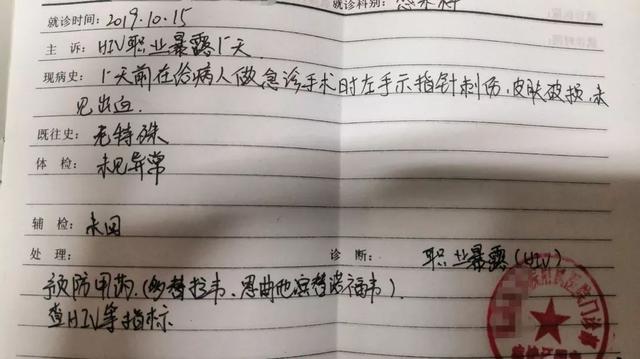 就诊时间: 2019.10.15 就诊科别:
主诉: HIV职业暴露1天
现病史: 1天前在给病人做急诊手术时左手示指针刺伤,皮肤破损,未
见出血.
既往史: 无特殊
体检: 未见异常
辅检: 未回
处理: 诊断: 职业暴露(HIV)
预防用药.(多替拉韦、恩曲他滨替诺福韦).
查HIV等指标